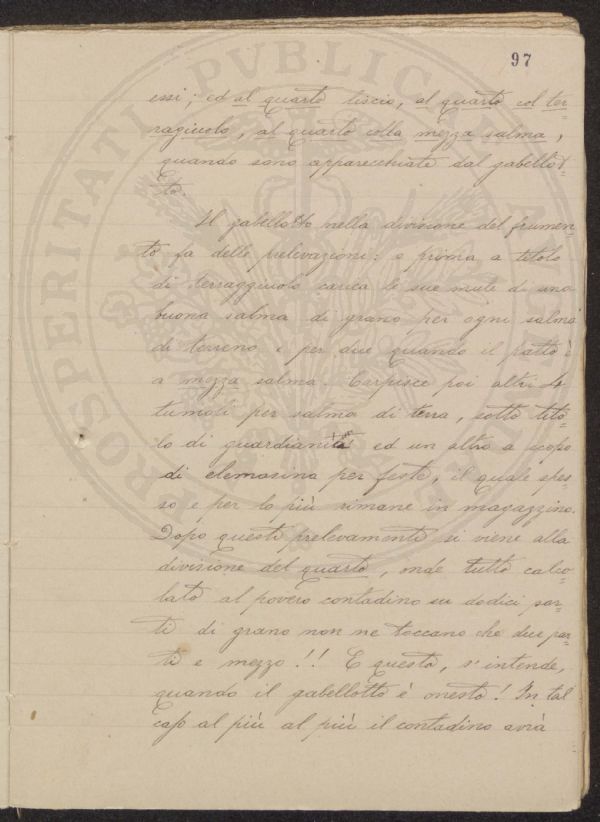 97
essi; ed al quarto liscio, al quarto col ter=
ragiuolo, al quarto colla mezza salma,
quando sono apparecchiate dal gabellot=
to.
Il gabellotto nella divisione del frumen
to fa delle prelevazioni: e prima a titolo
di terraggiuolo carica le sue mule di una
buona salma di grano per ogni salma
di terreno e per due quando il patto è
a mezza salma. Carpisce poi altri
tumoli per salma di terra, sotto tito=
lo di ed un altro a scopo
di elemosina per feste, il quale spes=
so e per lo più rimane in magazzino.
Dopo questi prelevamenti si viene alla
divisione del quarto, tutto calco=
lato al povero contadino su dodici par=
ti di grano non ne toccano che due par=
ti e mezzo!! E questo, s'intende,
quando il gabellotto è onesto! In tal
caso al più al più il contadino avrà
PROSPERITATI PVBLICAE